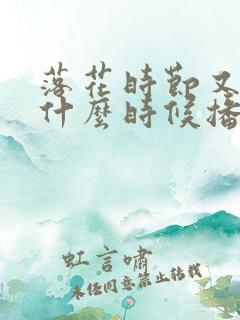 落花時節又
什麼時候播
虹言嘯
未经同意禁止转载